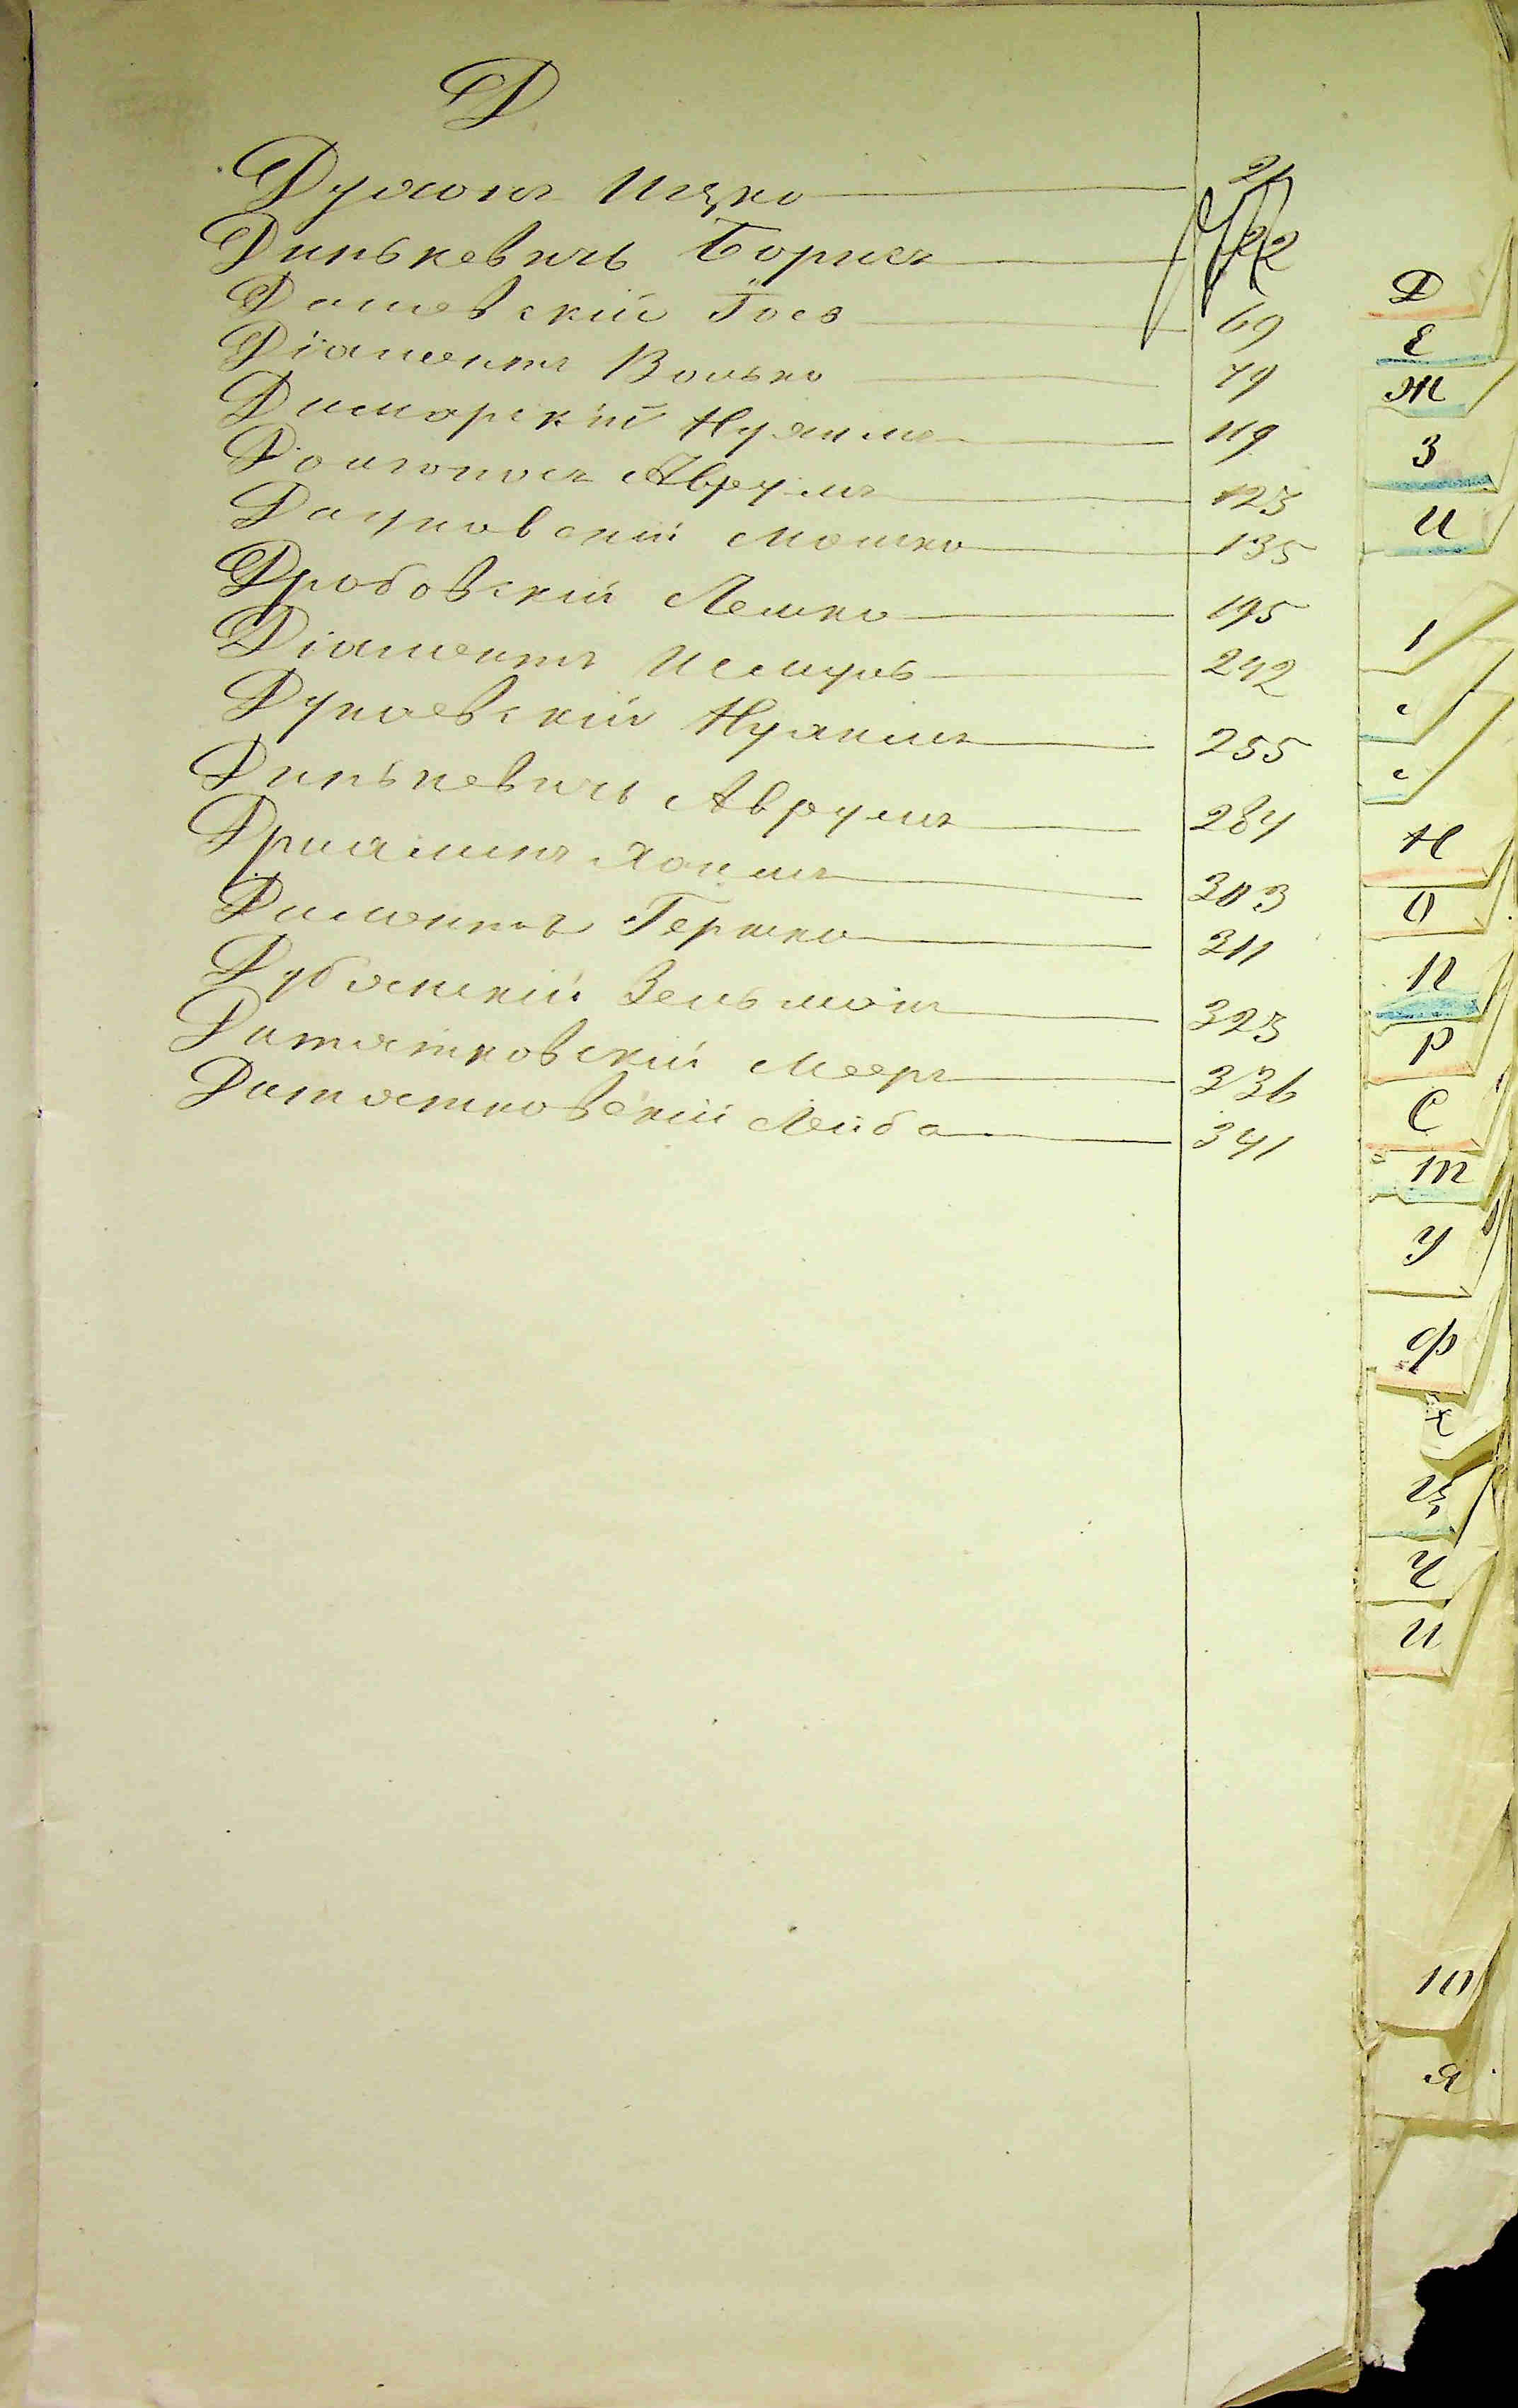 Д
Думанъ Ицко 21
Динькевичъ Борисъ 22
Дашевскій Іось 69
Діамантъ Волько 79
Димарскій Нухимъ 119
Долгоносъ Аврумъ 123
Дацковскій Мошко 135
Дробовскій Лейко 195
Діамантъ Исмуль 242
Дунаевскій Нухимъ 255
Динькевичъ Аврумъ 284
303
Диамантъ Гершко 311
Дубянскій Зельманъ 323
Дитятковскій Мееръ 336
Дитятковскій Лейба 341
Д
Е
Ж
З
И
І
Н
О
П
Р
С
Т
У
Ф
Х
Ц
Ч
Ю
Я